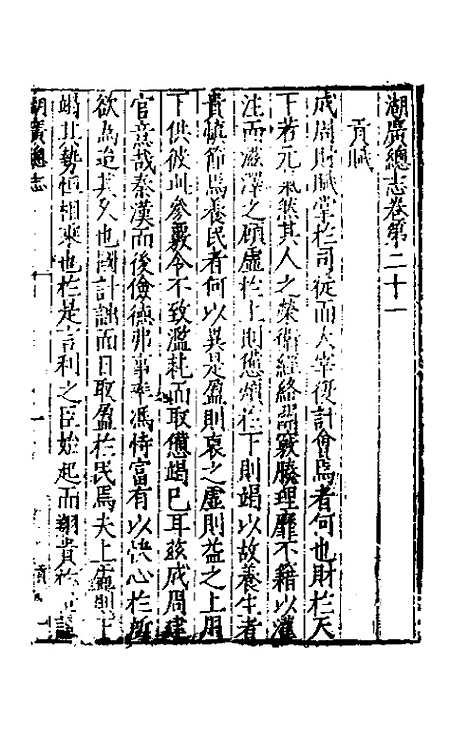 湖廣總志卷第二十一
賦
成周財賦掌於司徒而大宰復計會焉者何也財於天
下若元氣然其人之榮衛經絡諸竅腠理靡不藉以灌
注而滋澤之顧虛於上則憊煩於下則竭以故養生者
貴慎節焉養民者何以異是盈則裒之虛則益之上用
下供彼此參覈令不致濫耗而取憊竭已耳茲成周建
官意哉秦漢而後儉德弗事率馮恃富有以快心於所
欲為迨其久也國計詘而日取盈於民焉夫上虛則下
竭其勢恒相乘也於是言利之臣始起而翊貴於
湖廣總志